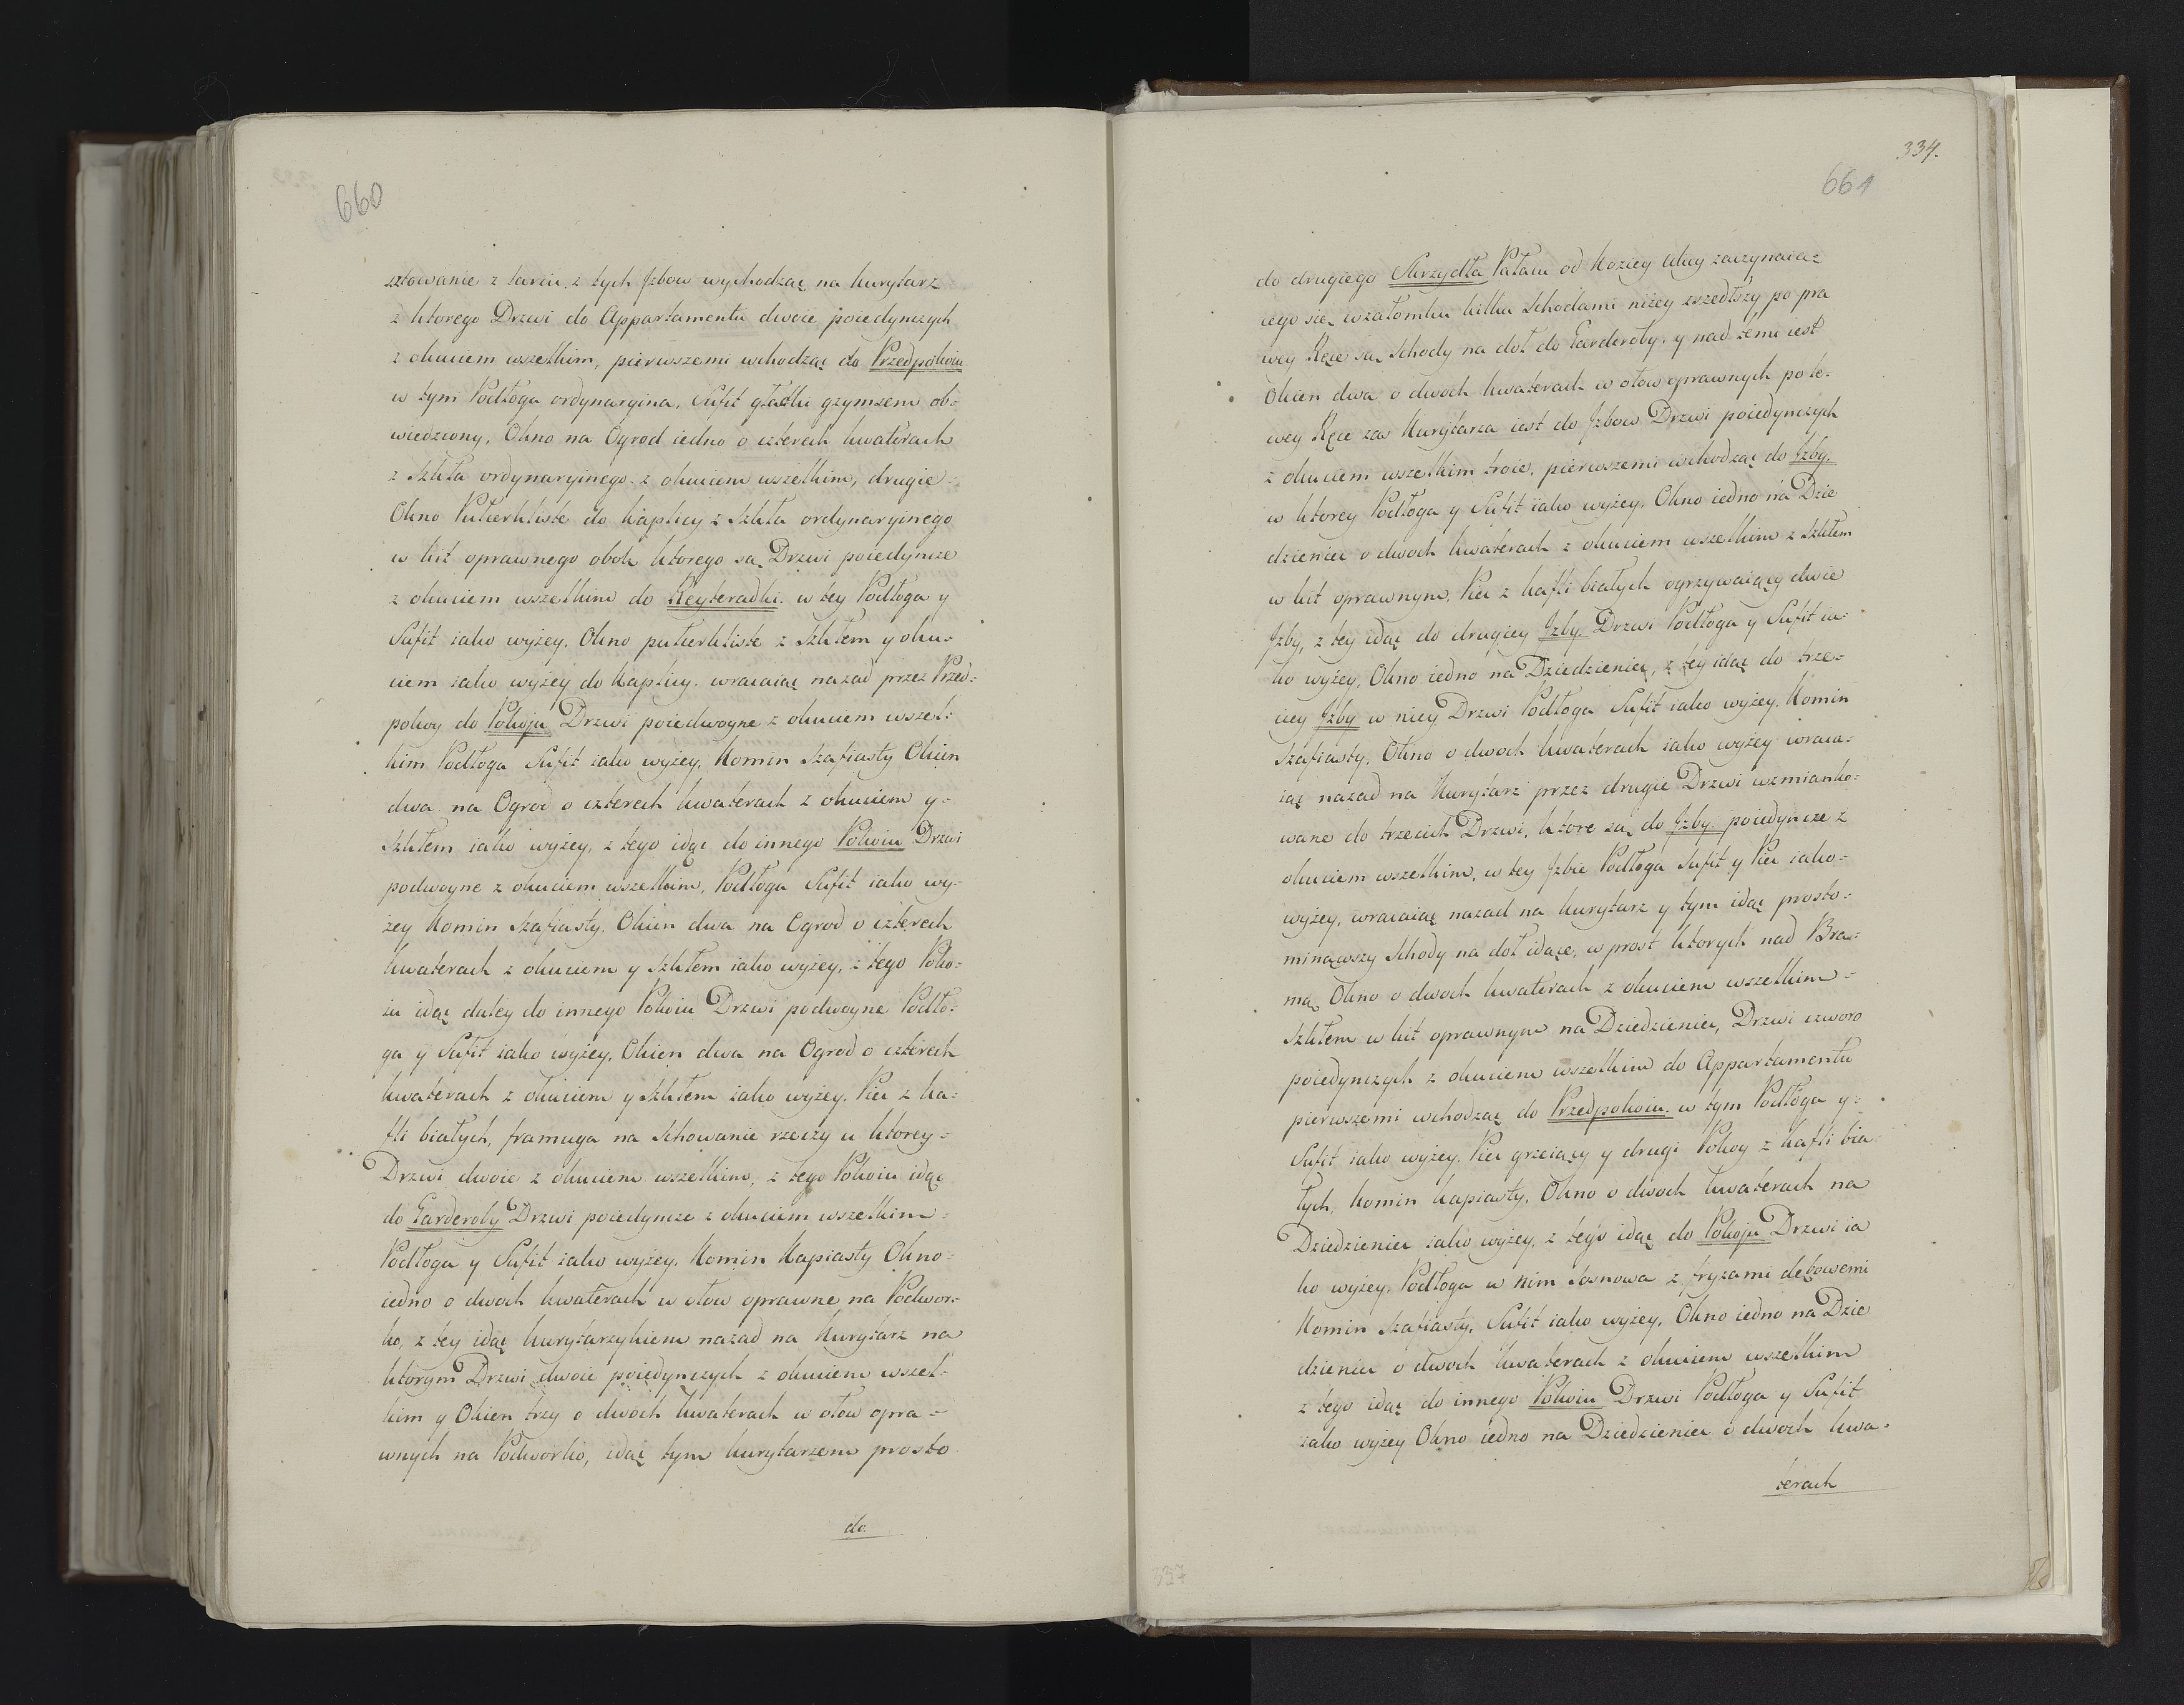 660
sztowanie z tarcic. z tych Jzbow wychodząc na kurytarz
z ktorego Drzwi do Appartamentu dwoie poiedynczych
z okuciem wszelkim, pierwszemi wchodząc do Przedpokoiu
w tym Podłoga ordynaryina, Sufit gładki gzymsem ob=
wiedziony, Okno na Ogrod iedno o czterech kwaterach
z Szkła ordynaryinego z okuciem wszelkim, drugie=
Okno Futerkliste do kaplicy z Szkła ordynaryinego
w kit oprawnego obok ktorego są Drzwi poiedyncze
z okuciem wszelkim do Reyteradki. w tey Podłoga y
Sufit iako wyżey. Okno puterkliste z Szkłem y oku=
ciem iako wyżey do kaplicy. wracaiąc nazad przez Przed=
pokoy do Pokoju Drzwi poiedwoyne z okuciem wszel=
kim Podłoga Sufit iako wyżey. Komin Szafiasty Okien
dwa na Ogrod o czterech kwaterach z okuciem y=
Szkłem iako wyżey, z tego idąc do innego Pokoiu Drzwi
podwoyne z okuciem wszelkim, Podłoga Sufit iako wy=
żey Komin Szafiasty. Okien dwa na Ogrod o czterech
kwaterach z okuciem y Szkłem iako wyżey, z tego Poko=
iu idąc daley do innego Pokoiu Drzwi podwoyne Podło=
ga y Sufit iako wyżey. Okien dwa na Ogrod o czterech
kwaterach z okuciem y Szkłem iako wyżey. Piec z ka=
fli białych, framuga na Schowanie rzeczy u ktorey=
Drzwi dwoie z okuciem wszelkim, z tego Pokoiu idąc
do Garderoby Drzwi poiedyncze z okuciem wszelkim=
Podłoga y Sufit iako wyżey. Komin Kapiasty Okno=
iedno o dwoch kwaterach w ołow oprawne na Podwor=
ko, z tey idąc kurytarzykiem nazad na Kurytarz na
ktorym Drzwi dwoie poiedynczych z okuciem wszel=
kim y Okien trzy o dwoch kwaterach w ołow opra=
wnych na Podworko, idąc tym kurytarzem prosto
do
334.
661
do drugiego Skrzydła Pałacu od Koziey Ulicy zaczynaia=
cego się, wzałomku kilku Schodami niżey zszedłszy po pra
wey Ręce są Schody na doł do Garderoby. y nad temi iest
Okien dwa o dwoch kwaterach w ołow oprawnych po le=
wey Ręce zaś Kurytarza iest do Jzbow Drzwi poiedynczych
z okuciem wszelkim troie. pierwszemi wchodząc do Jzby.
w ktorey Podłoga y Sufit iako wyżey. Okno iedno na Dzie
dzieniec o dwoch kwaterach z okuciem wszelkim z Szkłem
w kit oprawnym. Piec z kafli białych ogrzywaiący dwie
Jzby, z tey idąc do drugiey Jzby Drzwi Podłoga y Sufit ia=
ko wyżey, Okno iedno na Dziedzieniec, z tey idąc do trze=
ciey Jzby w niey Drzwi Podłoga Sufit iako wyżey. Komin
Szafiasty. Okno o dwoch kwaterach iako wyżey wraca=
iąc nazad na Kurytarz przez drugie Drzwi wzmianko=
wane do trzecich Drzwi, ktore są do Jzby poiedyncze z
okuciem wszelkim, w tey Jzbie Podłoga Sufit y Piec iako=
wyżey, wracaiąc nazad na kurytarz y tym idąc prosto=
minąwszy Schody na doł idące, w prost ktorych nad Bra=
mą Okno o dwoch kwaterach z okuciem wszelkim=
Szkłem w kit oprawnym na Dziedzieniec, Drzwi czworo
poiedynczych z okuciem wszelkim do Appartamentu
pierwszemi wchodząc do Przedpokoiu. w tym Podłoga y=
Sufit iako wyżey. Piec grzeiący y drugi Pokoy z kafli bia
łych, komin kapiasty. Okno o dwoch kwaterach na
Dziedzieniec iako wyżey, z tego idąc do Pokoju Drzwi ia
ko wyżey. Podłoga w nim Sosnowa z fryzami dębowemi
Komin Szafiasty, Sufit iako wyżey, Okno iedno na Dzie
dzieniec o dwoch kwaterach z okuciem wszelkim
z tego idąc do innego Pokoiu Drzwi Podłoga y Sufit
iako wyżey Okno iedno na Dziedzieniec o dwoch kwa=
terach
337